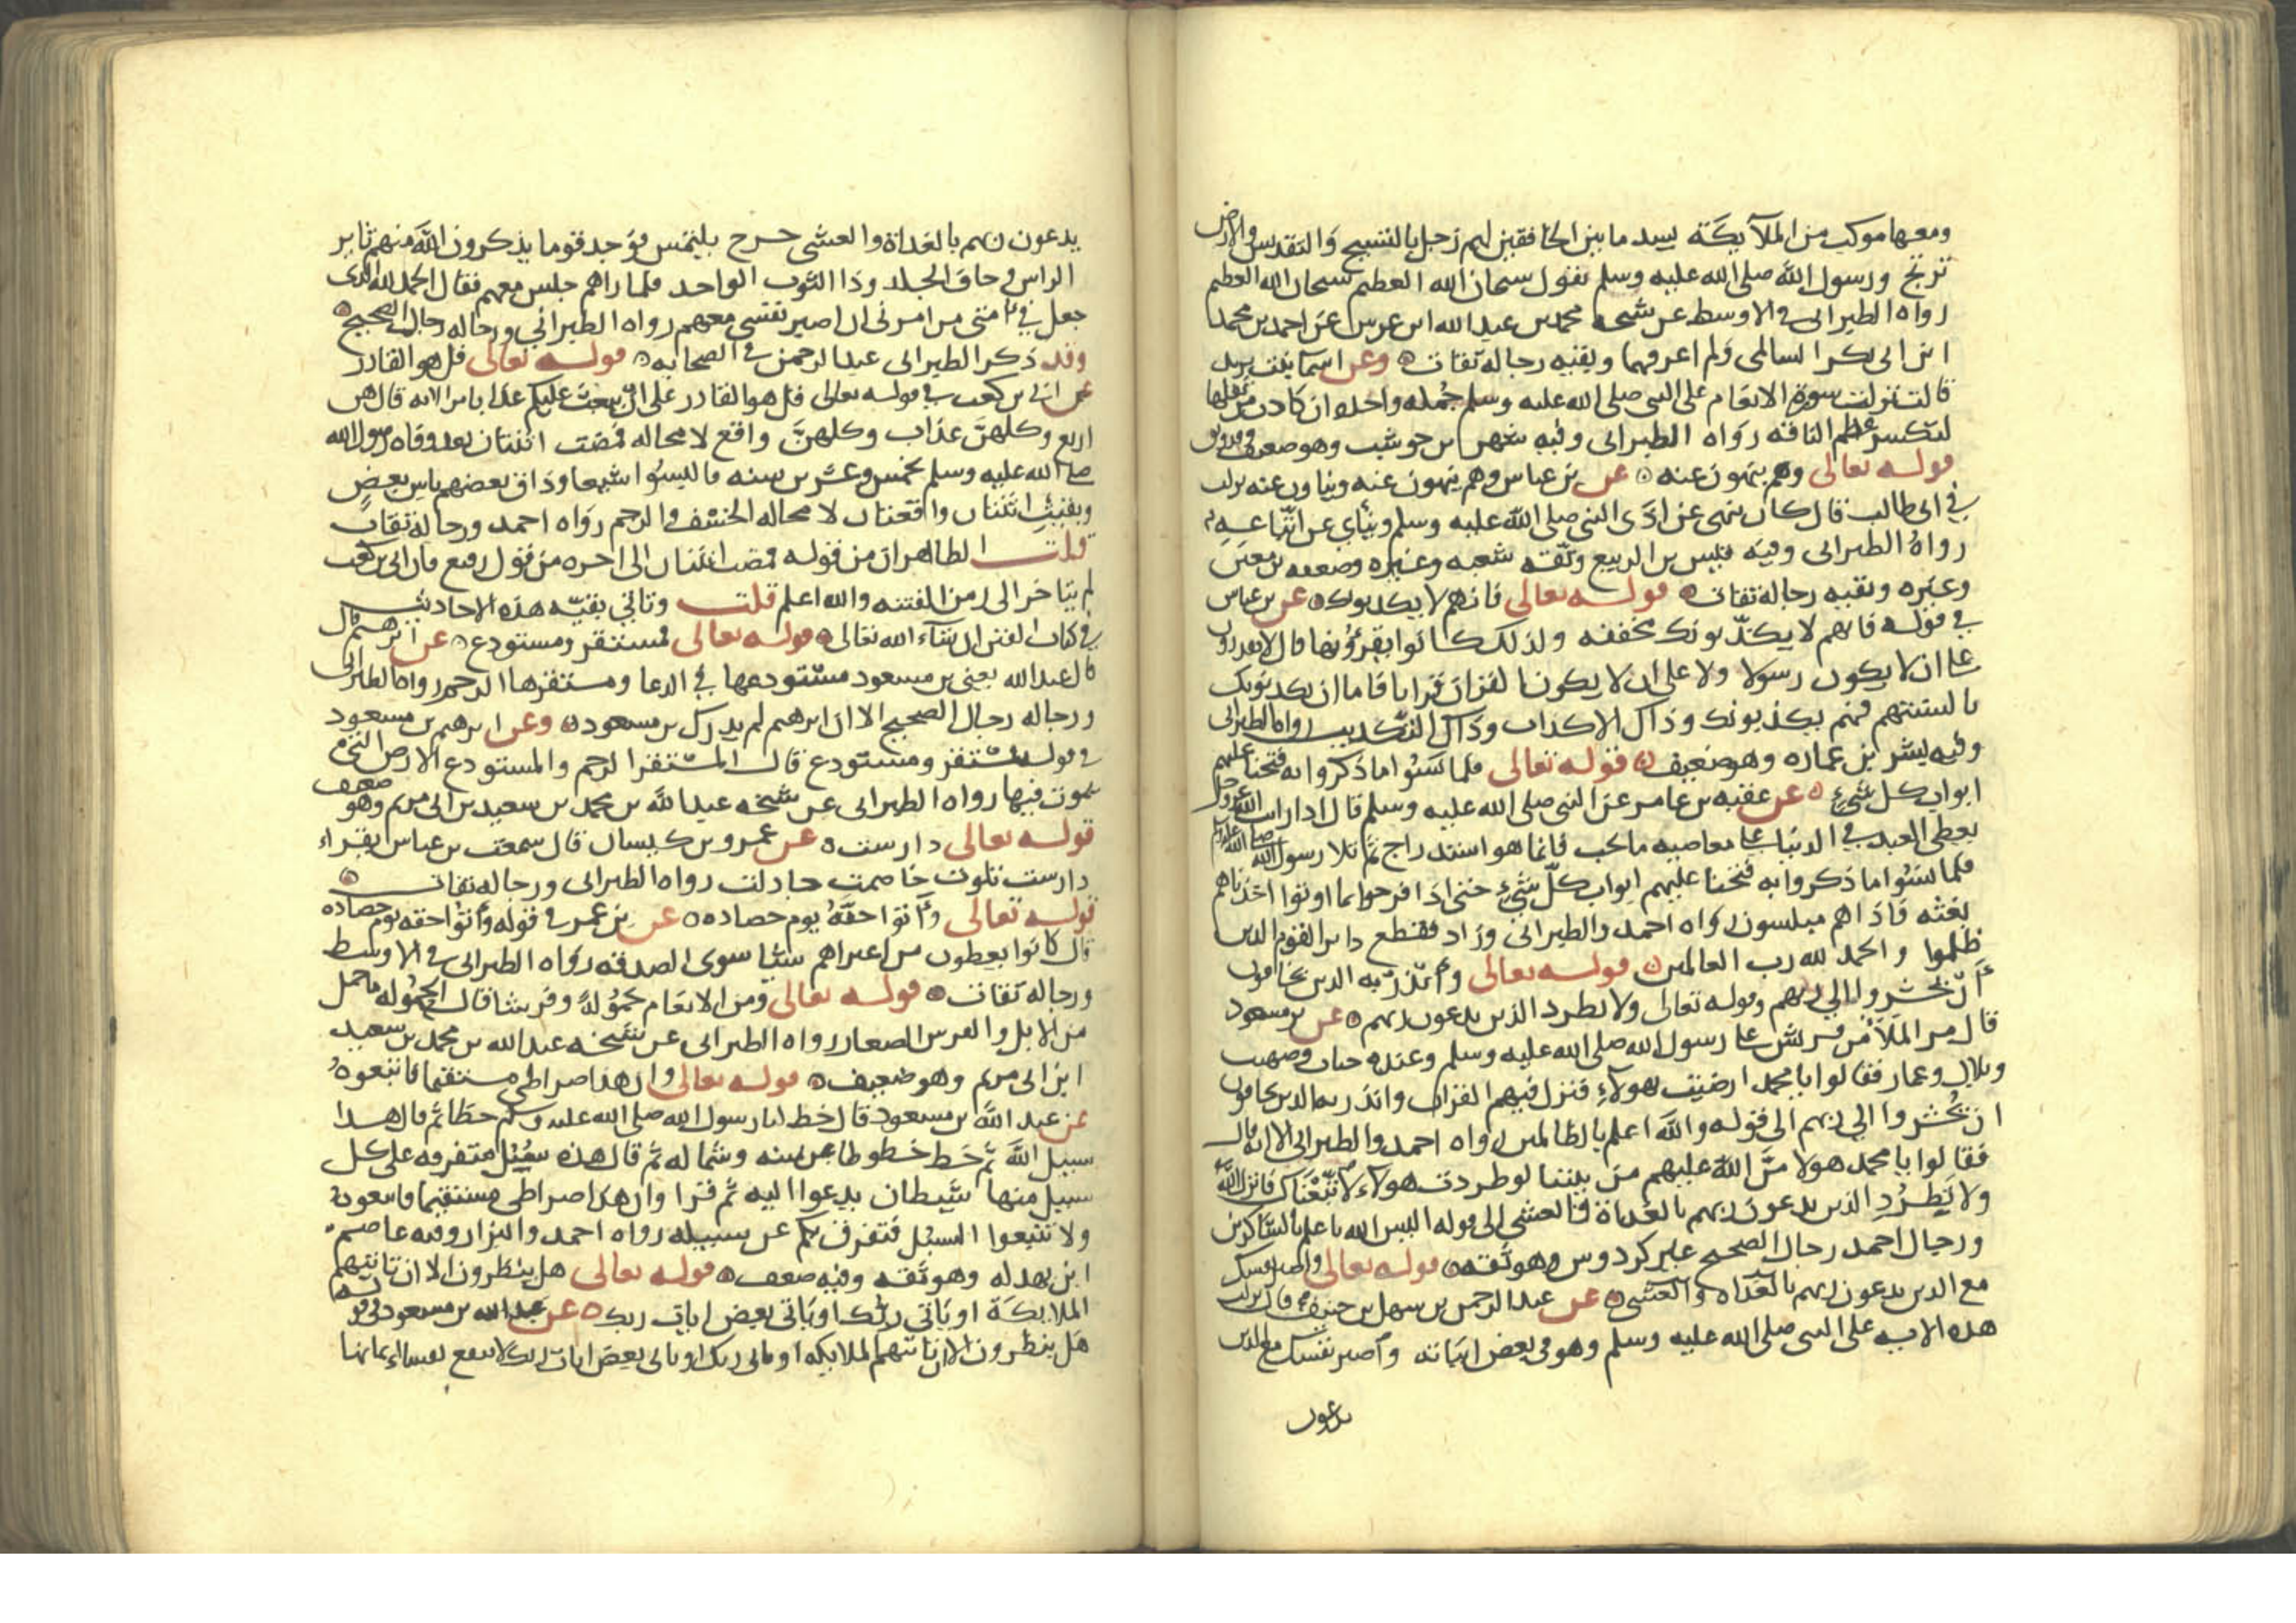 ومعها موكب من الملآيكة يسد ما بين الخافقين لهم زجل بالتسبيح والتقديس والارض
ترتج ورسول الله صلى الله عليه وسلم يقول سبحان الله العظيم سبحان الله العظيم
رواه الطبراني في الاوسط عن شيخه محمد بن عبد الله ابن عرس عن احمد بن محمد
ابن ابي بكر السالمي ولم اعرفهما وبقيه رجاله ثقات وعن اسما بنت يزيد
قالت نزلت سورة الانعام على النبي صلى الله عليه وسلم جمله واحده ان كادت من ثقلها
لتكسر عظم الناقه رواه الطبراني وفيه شهر بن حوشب وهو ضعيف وقد وثق
قوله تعالى وهم ينهون عنه عن بن عباس وهم ينهون عنه ويناون عنه نزلت
في ابي طالب قال كان ينهى عن اذى النبي صلى الله عليه وسلم وينأي عن اتباعه
رواه الطبراني وفيه قيس بن الربيع وثقه شعبه وغيره وضعفه بن معين
وغيره وبقيه رجاله ثقات قوله تعالى فانهم لا يكذبونك عن بن عباس
في قوله فانهم لا يكذبونك مخففه ولذلك كانوا يقرؤنها قال لا يقدرون
على ان لا يكون رسولا ولا على ان لا يكون القران قرانا فاما ان يكذبونك
بالسنتهم فهم يكذبونك وذاك الاكذاب وذاك التكذيب رواه الطبراني
وفيه بشر بن عماره وهو ضعيف قوله تعالى فلما نسوا ما ذكروا به فتحنا عليهم
ابواب كل شيء عن عقبه بن عامر عن النبي صلى الله عليه وسلم قال اذا رايت الله عز وجل
يعطي العبد في الدنيا على معاصيه ما يحب فانما هو استدراج ثم تلا رسول الله صلى الله عليه وسلم
فلما نسوا ما ذكروا به فتحنا عليهم ابواب كل شيء حتى اذا فرحوا بما اوتوا اخذناهم
بغتة فاذا هم مبلسون رواه احمد والطبراني وزاد فقطع دابر القوم الذين
ظلموا والحمد لله رب العالمين قوله تعالى وأنذر به الذين يخافون
أن يحشروا الى ربهم وقوله تعالى ولا تطرد الذين يدعون ربهم عن بن مسعود
قال مر الملأ من قريش على رسول الله صلى الله عليه وسلم وعنده خباب وصهيب
وبلال وعمار فقالوا يا محمد ارضيت بهولآء فنزل فيهم القران وانذر به الذين يخافون
ان يحشروا الى ربهم الى قوله والله اعلم بالظالمين رواه احمد والطبراني الا انه قال
فقالوا يا محمد هولا من الله عليهم من بيننا لو طردت هولآء لاتبعناك فانزل الله
ولا تطرد الذين يدعون ربهم بالغداة والعشي الى قوله اليس الله باعلم بالشاكرين
ورجال احمد رجال الصحيح غير كردوس وهو ثقه قوله تعالى واصبر نفسك
مع الذين يدعون ربهم بالغداه والعشي عن عبد الرحمن بن سهل بن حنيف قال نزلت
هذه الايه على النبي صلى الله عليه وسلم وهو في بعض ابياته واصبر نفسك مع الذين
يدعون
يدعون ربهم بالغداة والعشي خرج يلتمس فوجد قوما يذكرون الله منهم ثاير
الراس وجاف الجلد وذا الثوب الواحد فلما راهم جلس معهم فقال الحمد لله الذي
جعل في امتي من امرني ان اصبر نفسي معهم رواه الطبراني ورجاله رجال الصحيح
وقد ذكر الطبراني عبد الرحمن في الصحابه قوله تعالى قل هو القادر
عن ابي بن كعب في قوله تعالى قل هو القادر على ان يبعث عليكم عذابا من الايه قال هن
اربع وكلهن عذاب وكلهن واقع لا محاله فمضت اثنتان بعد وفاه رسول الله
صلى الله عليه وسلم بخمس وعشرين سنه فالبسوا شيعا وذاق بعضهم باس بعض
وبقيت اثنتان واقعتان لا محاله الخسف والرجم رواه احمد ورجاله ثقات
قلت الظاهر ان من قوله فمضت اثنتان الى اخره من قول رفيع فان ابي بن كعب
لم يتاخر الى زمن الفتنه والله اعلم قلت وتاتي بقيه هذه الاحاديث
في كتاب الفتن ان شآء الله تعالى قوله تعالى فمستقر ومستودع عن ابرهيم قال
قال عبد الله يعني بن مسعود مستودعها في الدعا ومستقرها الرحم رواه الطبراني
ورجاله رجال الصحيح الا ان ابرهيم لم يدرك بن مسعود وعن ابرهيم بن مسعود
في قوله مستقر ومستودع قال المستقر الرحم والمستودع الارض التي
تموت فيها رواه الطبراني عن شيخه عبد الله بن محمد بن سعيد بن ابي مريم وهو ضعيف
قوله تعالى دارست عن عمرو بن كيسان قال سمعت بن عباس يقراء
دارست تلوت خاصمت جادلت رواه الطبراني ورجاله ثقات
قوله تعالى وأتوا حقه يوم حصاده عن بن عمر في قوله وأتوا حقه يوم حصاده
قال كانوا يعطون من اعتراهم شيا سوى الصدقه رواه الطبراني في الاوسط
ورجاله ثقات قوله تعالى ومن الانعام حمولة وفرشا قال الحموله ما حمل
من الابل والفرس الصغار رواه الطبراني عن شيخه عبد الله بن محمد بن سعيد
ابن ابي مريم وهو ضعيف قوله تعالى وان هذا صراطي مستقيما فاتبعوه
عن عبد الله بن مسعود قال خط لنا رسول الله صلى الله عليه وسلم خطا ثم قال هذا
سبيل الله ثم خط خطوطا عن يمينه وشماله ثم قال هذه سبل متفرقه على كل
سبيل منها شيطان يدعوا اليه ثم قرا وان هذا صراطي مستقيما فاتبعوه
ولا تتبعوا السبل فتفرق بكم عن سبيله رواه احمد والبزار وفيه عاصم
ابن بهدله وهو ثقه وفيه ضعف قوله تعالى هل ينظرون الا ان تاتيهم
الملايكة او ياتي ربك او ياتي بعض ايات ربك عن عبد الله بن مسعود في قوله
هل ينظرون الا ان تاتيهم الملايكه او ياتي ربك او ياتي بعض ايات ربك لا ينفع نفسا ايمانها